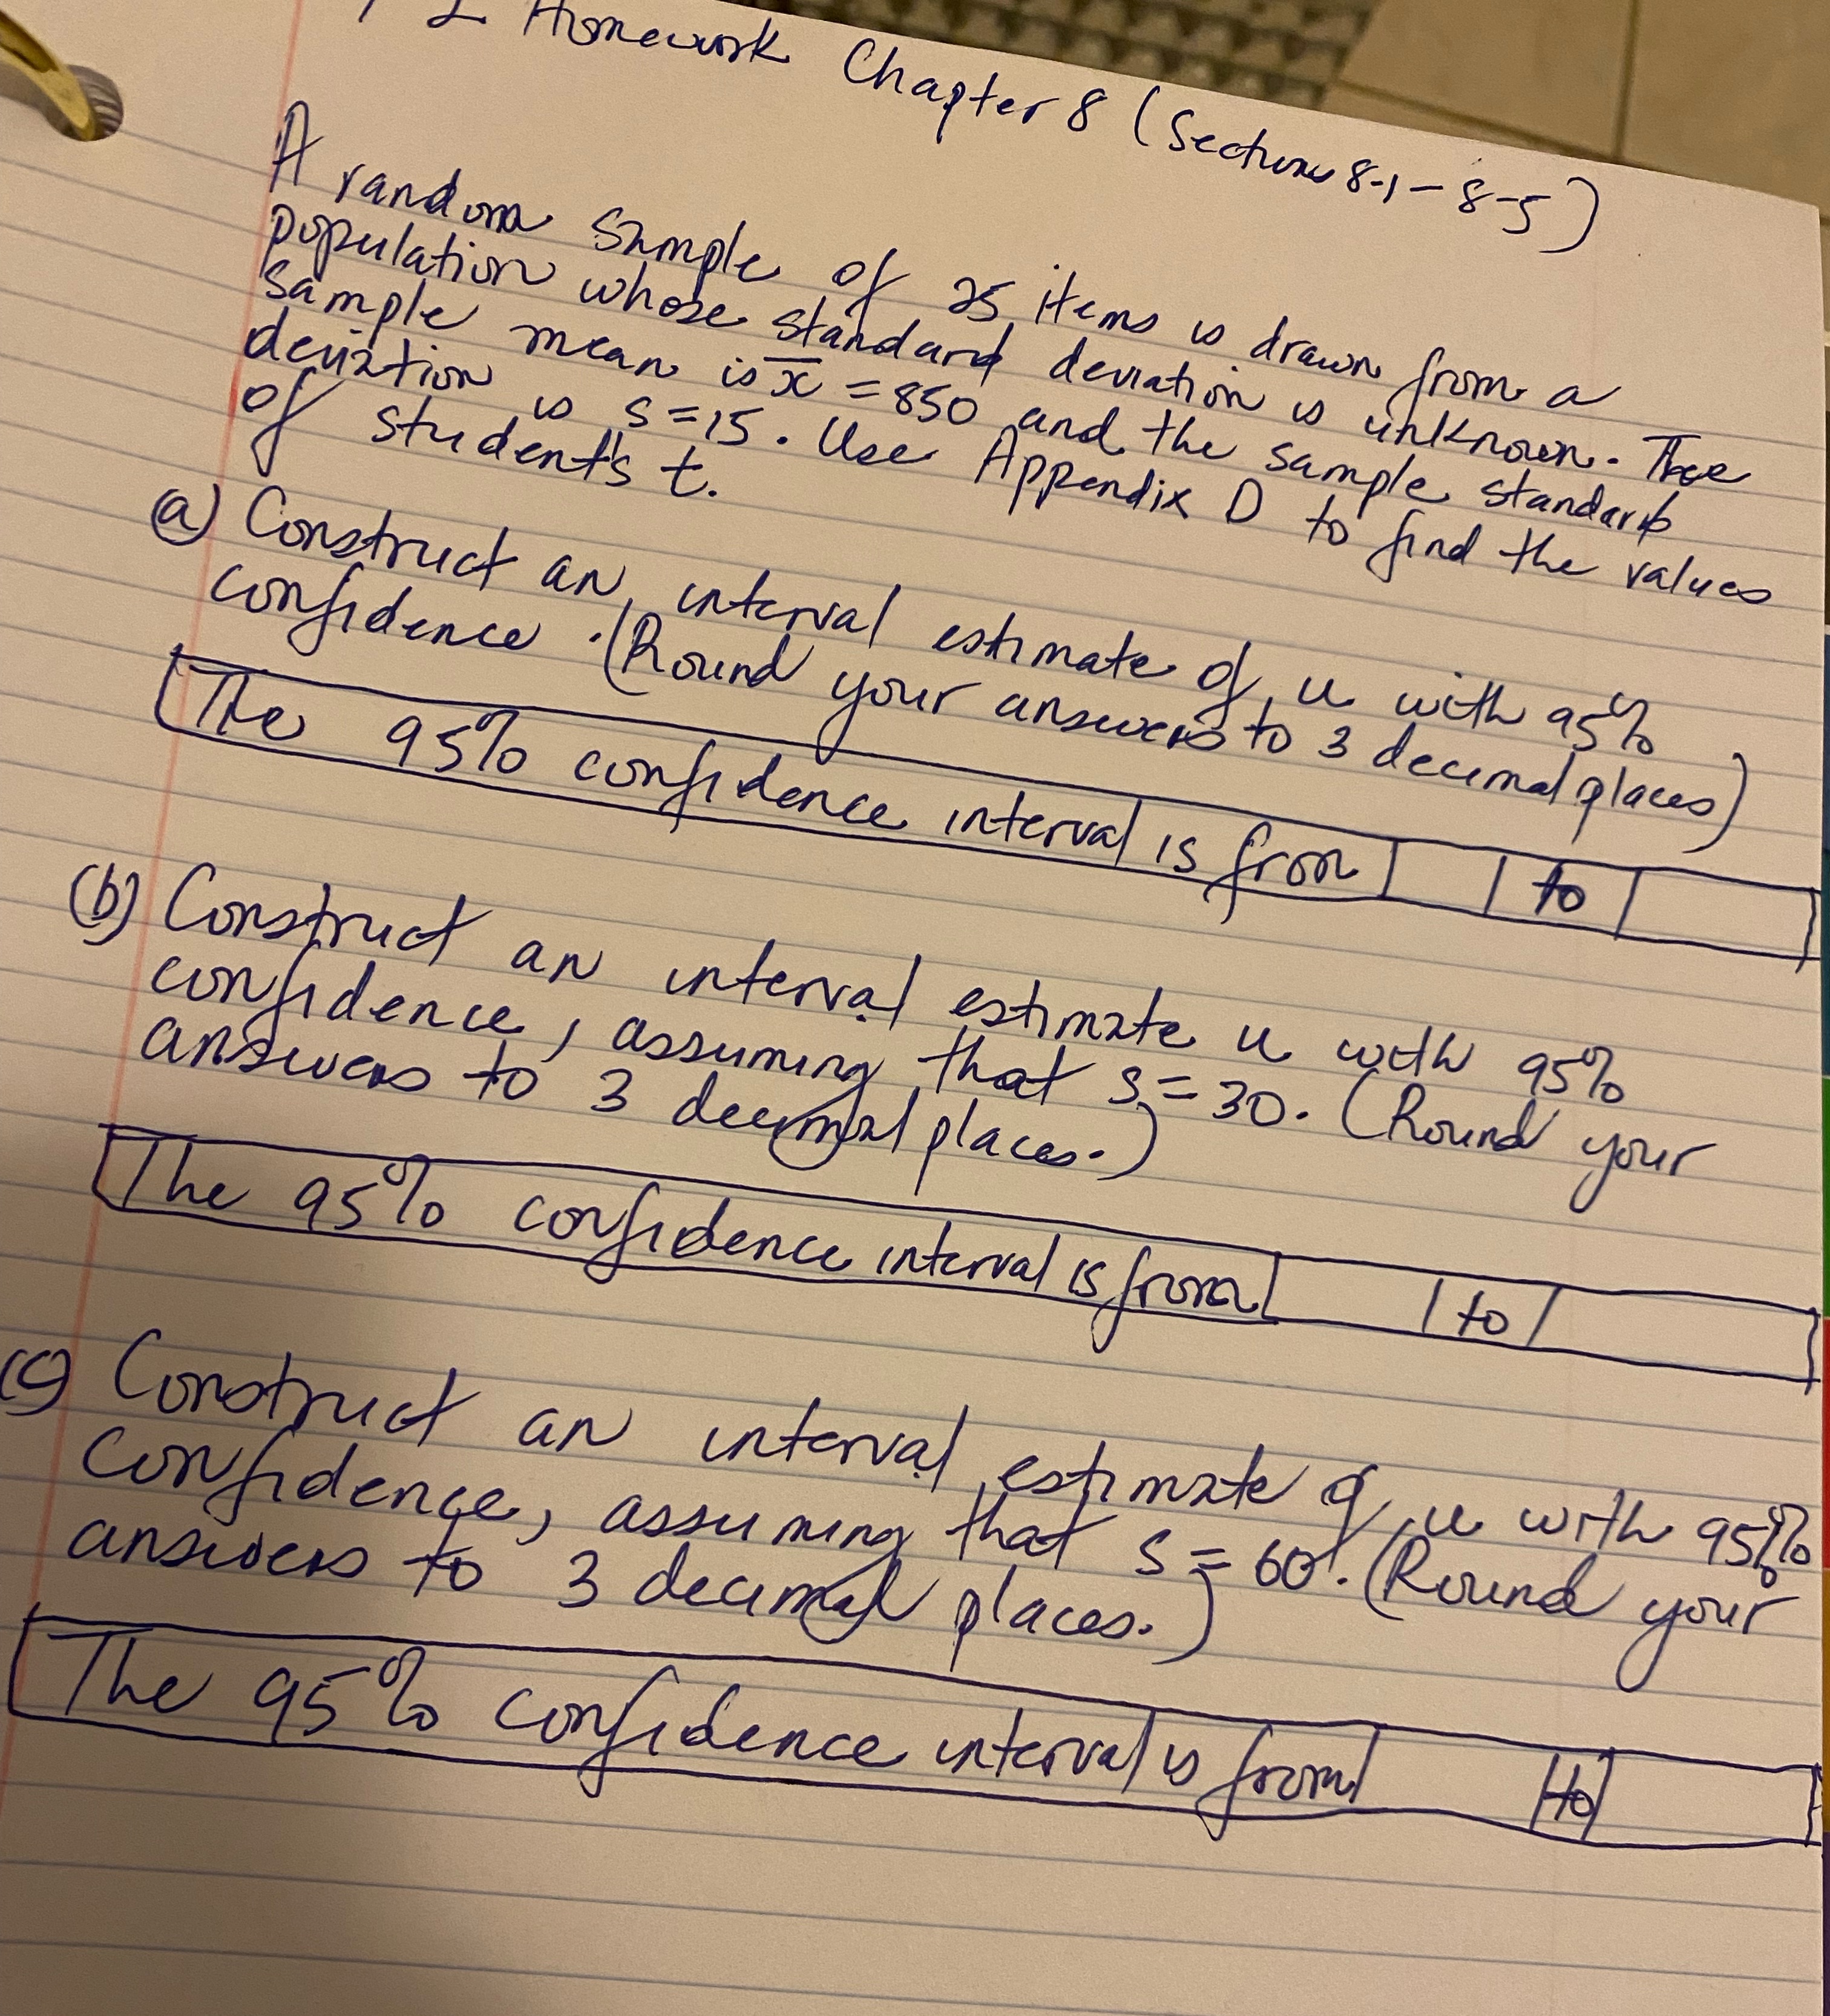 1 2 Homework Chapter 8 (Sections 8-1 – 8-5)
A random sample of 25 items is drawn from a
population whose standard deviation is unknown. The
sample mean is x̄ = 850 and the sample standard
deviation is s = 15. Use Appendix D to find the values
of student's t.
(a) Construct an interval estimate of u with 95%
confidence. (Round your answers to 3 decimal places)
The 95% confidence interval is from to
(b) Construct an interval estimate u with 95%
confidence, assuming that s = 30. (Round your
answers to 3 decimal places.)
The 95% confidence interval is from to
(c) Construct an interval estimate of u with 95%
confidence, assuming that s = 60. (Round your
answers to 3 decimal places.)
The 95% confidence interval is from to